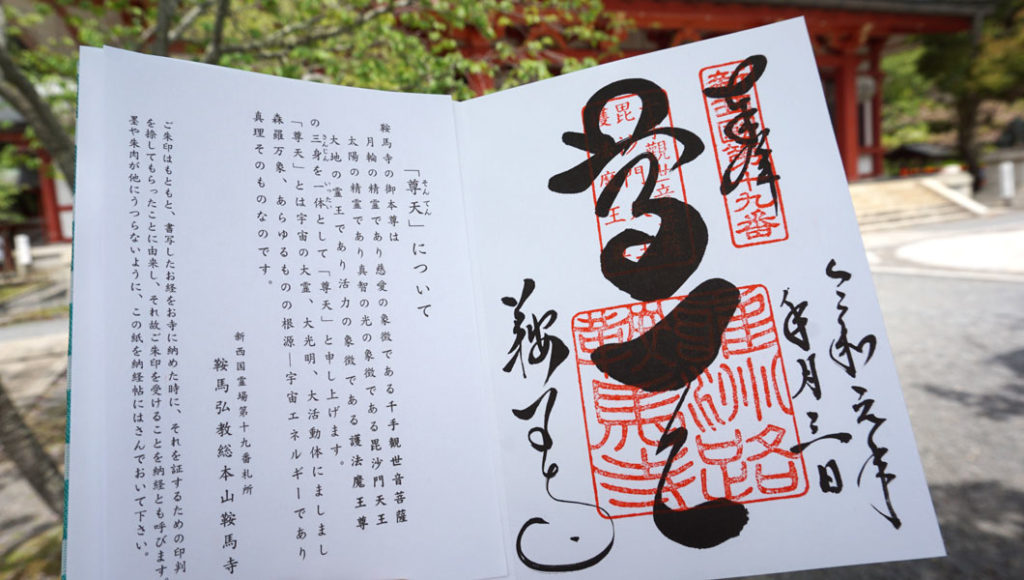 奉拝
新西国第十九番
尊天
千手観世音
毘沙門天
護法魔王
雍州路
鞍馬寺
令和元年
五月三日
「尊天」について
そんてん
鞍馬寺の御本尊は
月輪の精霊であり慈愛の象徴である千手観世音菩薩
太陽の精霊であり真智の光の象徴である毘沙門天王
大地の霊王であり活力の象徴である護法魔王尊
の三身を一体として「尊天」と申し上げます。
さんじん いったい
「尊天」とは宇宙の大霊、大光明、大活動体にましまし
森羅万象、あらゆるものの根源―宇宙エネルギーであり
真理そのものなのです。
新西国霊場第十九番札所
鞍馬弘教総本山鞍馬寺
ご朱印はもともと、書写したお経をお寺に納めた時に、それを証するための印判
を捺してもらったことに由来し、それ故ご朱印を受けることを納経とも呼びます。
墨や朱肉が他にうつらないように、この紙を納経帖にはさんでおいて下さい。